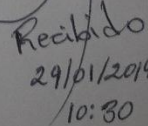 Recibido
29/01/2019
10:30